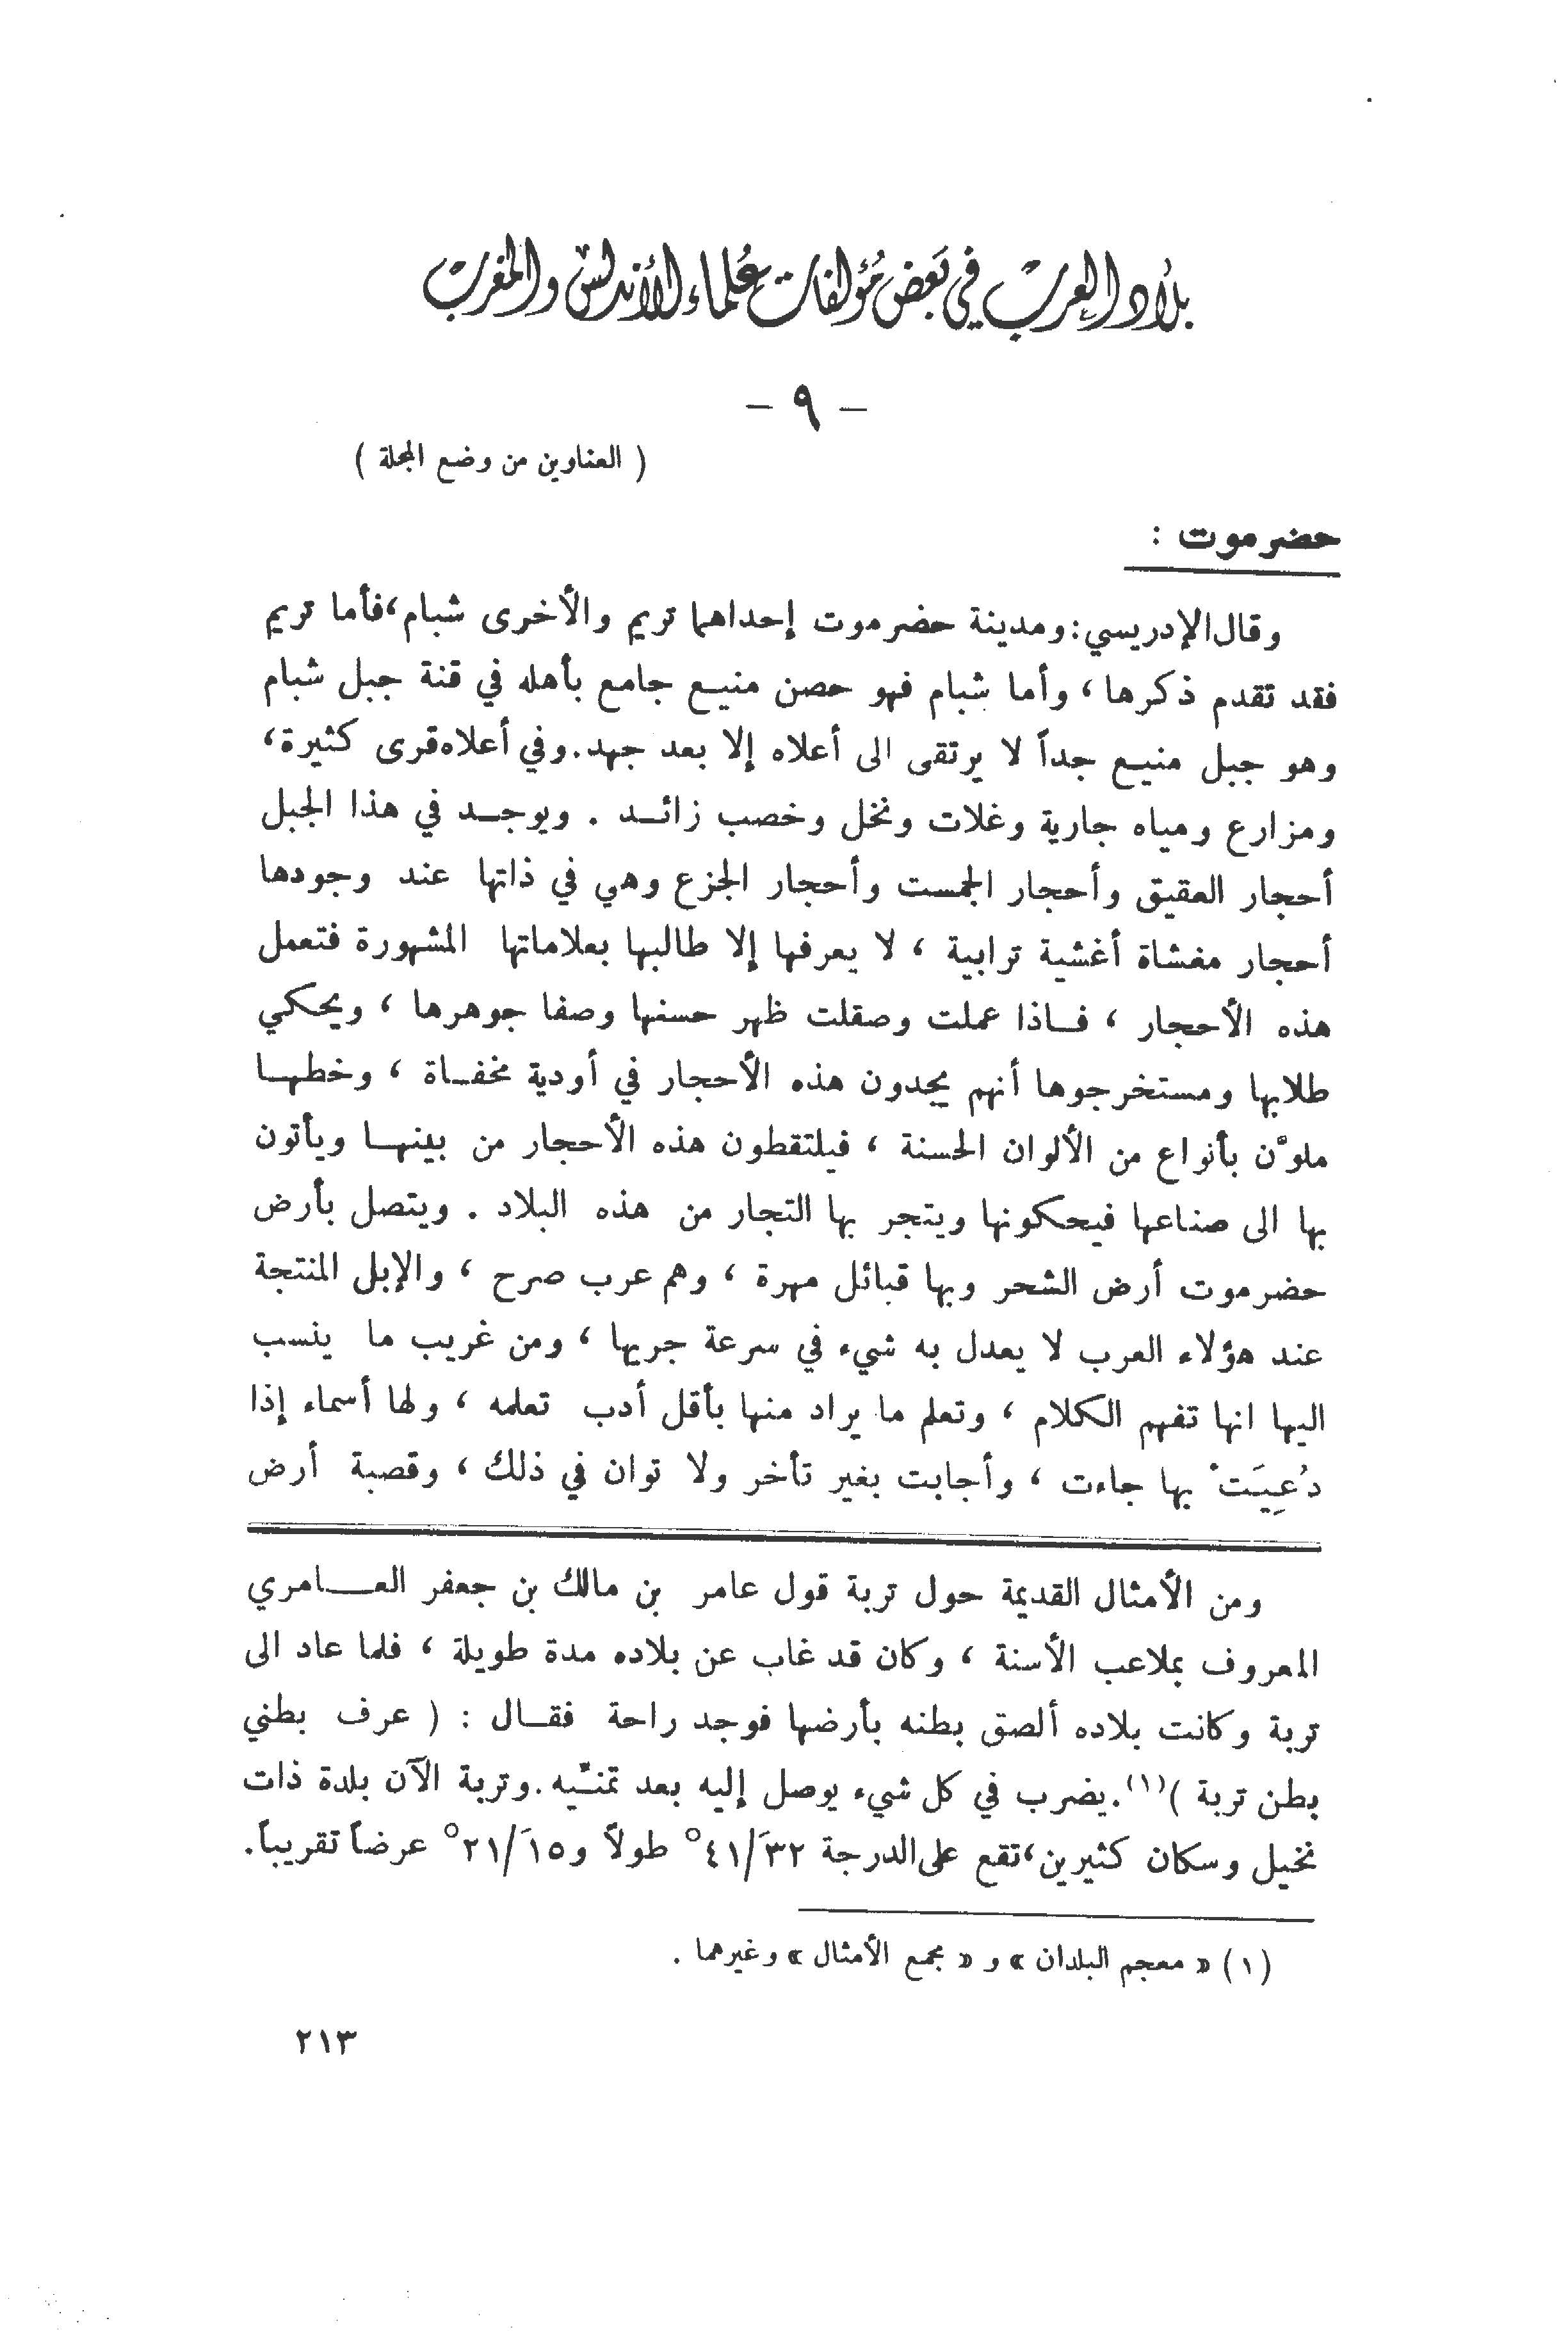 بلاد العرب في بعض مؤلفات علماء الأندلس والمغرب
- ٩ -
( العناوين من وضع المجلة )
حضرموت :
وقال الإدريسي: ومدينة حضرموت إحداهما تريم والأخرى شبام، فأما تريم
فقد تقدم ذكرها ، وأما شبام فهو حصن منيع جامع بأهله في قنة جبل شبام
وهو جبل منيع جداً لا يرتقى الى أعلاه إلا بعد جهد. وفي أعلاه قرى كثيرة،
ومزارع ومياه جارية وغلات ونخل وخصب زائد . ويوجد في هذا الجبل
أحجار العقيق وأحجار الجمست وأحجار الجزع وهي في ذاتها عند وجودها
أحجار مغشاة أغشية ترابية ، لا يعرفها إلا طالبها بعلاماتها المشهورة فتعمل
هذه الأحجار ، فاذا عملت وصقلت ظهر حسنها وصفا جوهرها ، ويحكي
طلابها ومستخرجوها أنهم يجدون هذه الأحجار في أودية مخفاة ، وخطها
ملوّن بأنواع من الألوان الحسنة ، فيلتقطون هذه الأحجار من بينها ويأتون
بها الى صناعها فيحكونها ويتجر بها التجار من هذه البلاد . ويتصل بأرض
حضرموت أرض الشحر وبها قبائل مهرة ، وهم عرب صرح ، والإبل المنتجة
عند هؤلاء العرب لا يعدل به شيء في سرعة جريها ، ومن غريب ما ينسب
اليها انها تفهم الكلام ، وتعلم ما يراد منها بأقل أدب تعلمه ، ولها أسماء إذا
دُعِيَتْ بها جاءت ، وأجابت بغير تأخر ولا توان في ذلك ، وقصبة أرض
ومن الأمثال القديمة حول تربة قول عامر بن مالك بن جعفر العامري
المعروف بملاعب الأسنة ، وكان قد غاب عن بلاده مدة طويلة ، فلما عاد الى
تربة وكانت بلاده ألصق بطنه بأرضها فوجد راحة فقال : ( عرف بطني
بطن تربة )(١). يضرب في كل شيء يوصل إليه بعد تمنّيه. وتربة الآن بلدة ذات
نخيل وسكان كثيرين، تقع على الدرجة ٣٢َ/٤١° طولاً و١٥َ/٢١° عرضاً تقريباً.
(١) « معجم البلدان » و « مجمع الأمثال » وغيرهما .
٢١٣